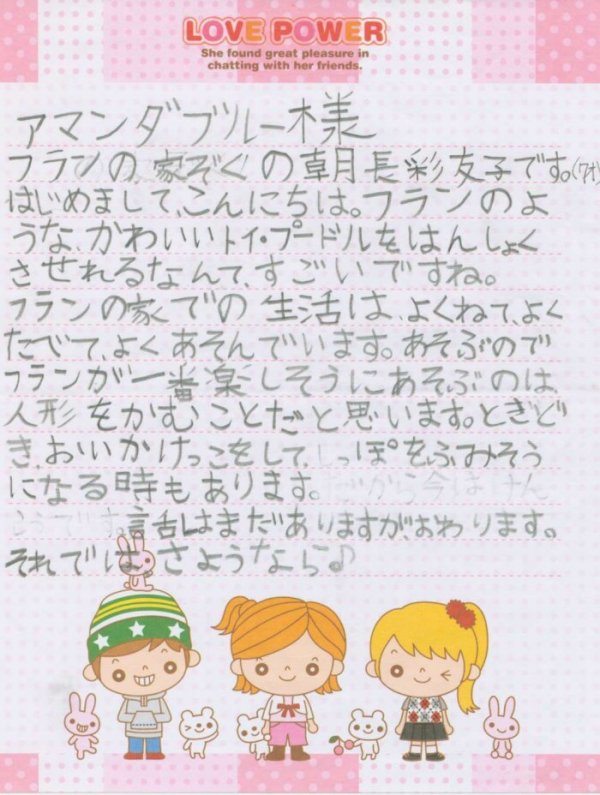 LOVE POWER
She found great pleasure in
chatting with her friends.
アマンダブルー様
フランの家ぞくの朝長彩友子です。
はじめまして、こんにちは。フランのよ
うな、かわいいトイ・プードルをはんしょく
させれるなんて、すごいですね。
フランの家での生活は、よくねて、よく
たべて、よくあそんでいます。あそぶので
フランが一番楽しそうにあそぶのは
人形をかむことだと思います。ときど
き、おいかけっこをして、しっぽをふみそう
になる時もあります。だから今はけん
らうです。話しはまだありますが、おわります。
それでは、さようなら♪